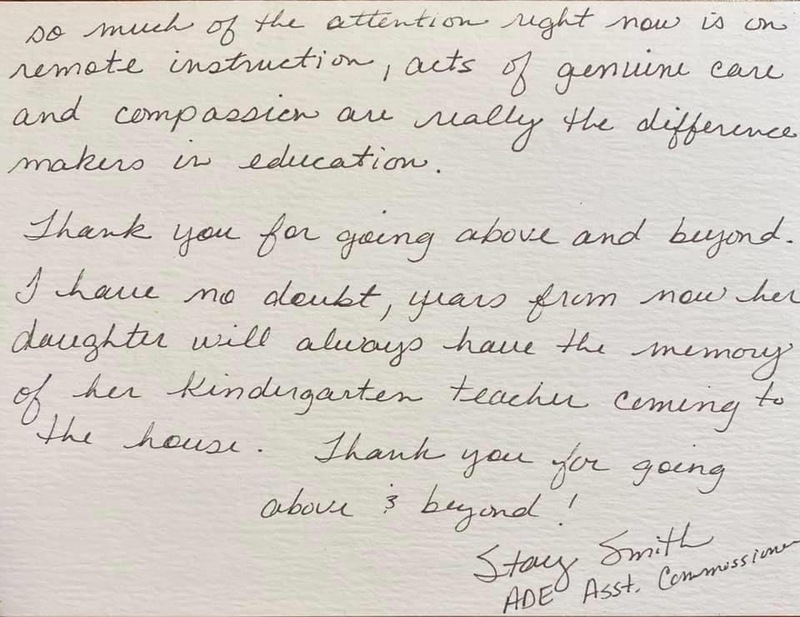 so much of the attention right now is on
remote instruction, acts of genuine care
and compassion are really the difference
makers in education.
Thank you for going above and beyond.
I have no doubt, years from now her
daughter will always have the memory
of her kindergarten teacher coming to
the house. Thank you for going
above & beyond!
Stacy Smith
ADE Asst. Commissioner